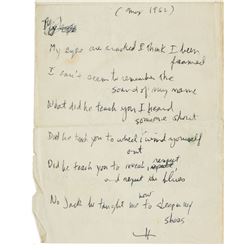 (Nov 1962)
My eyes are cracked I think I been
framed
I can't seem to remember the
sound of my name
What did he teach you I heard
someone shout
Did he teach you to wheel & wind yourself
out
Did he teach you to reveal, respect,
and repent the blues
No Jack he taught me how to sleep in my
shoes